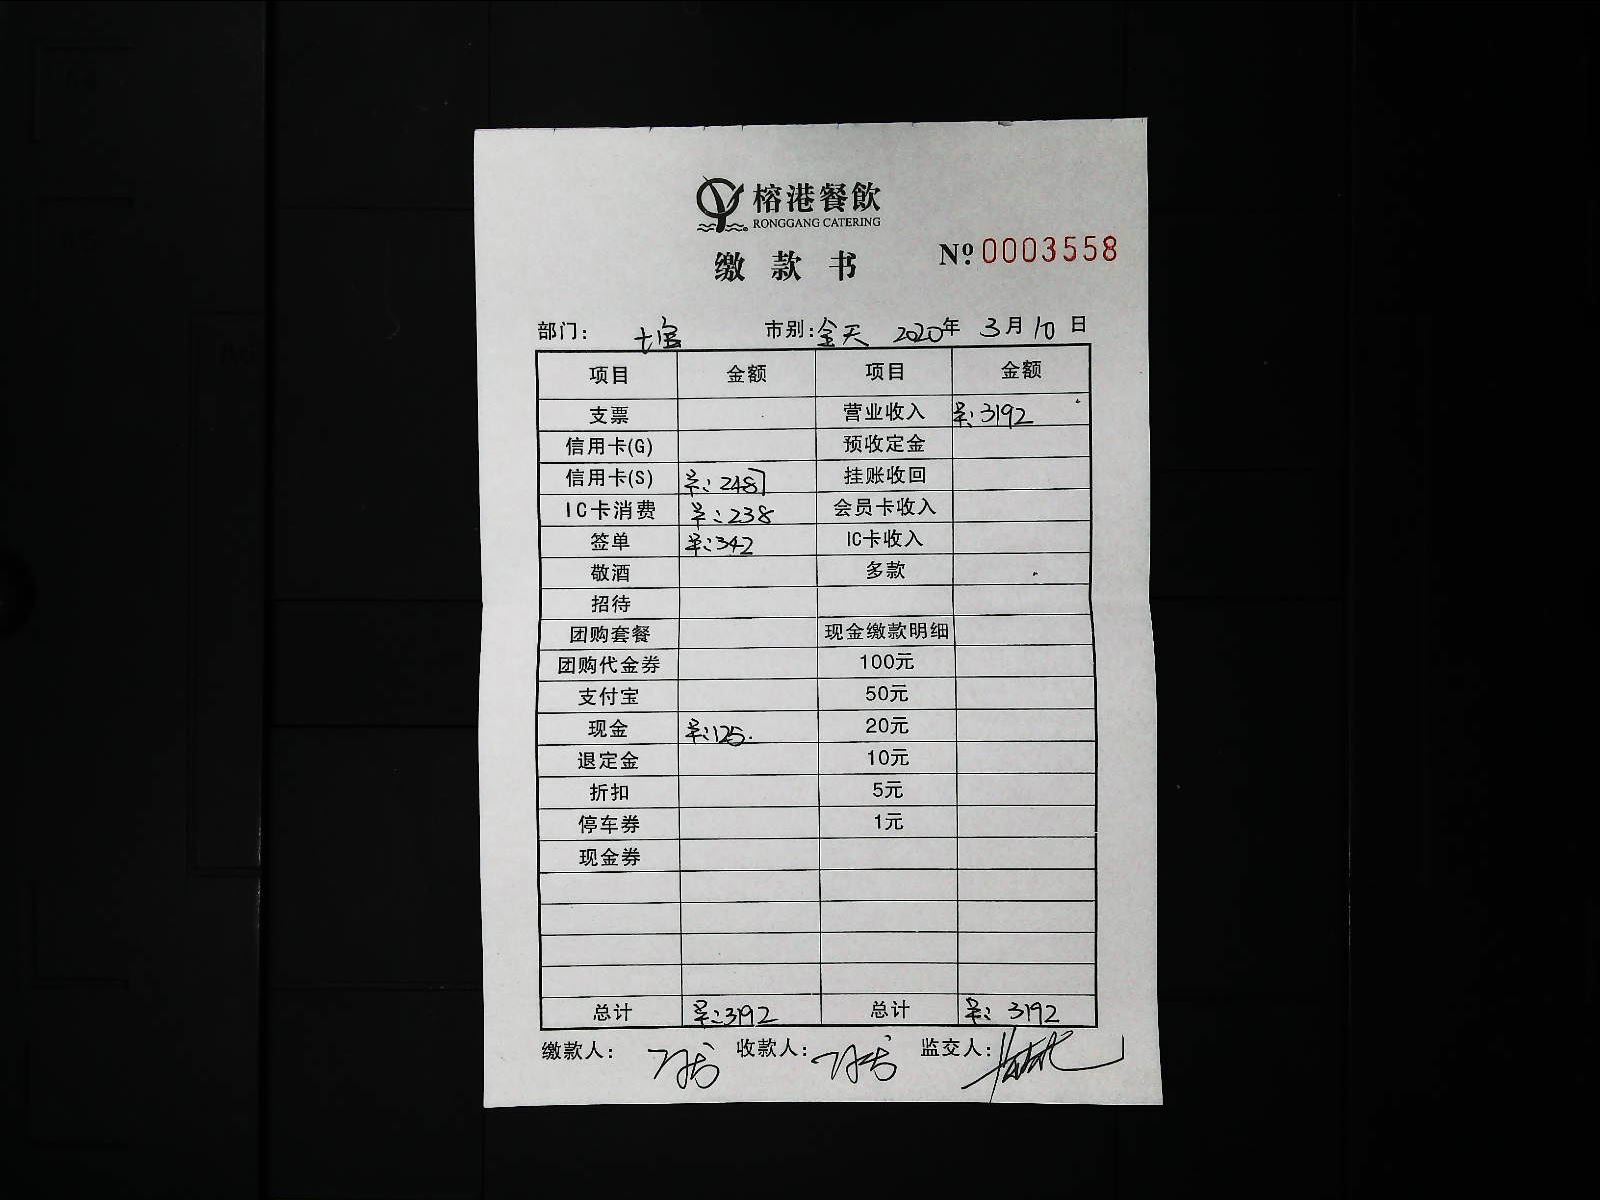 榕港餐飲
RONGGANG CATERING
缴款书 Nº 0003558
部门: 七宝 市别: 全天 2020年 3月 10日
项目 金额 项目 金额
支票 营业收入 单: 3192
信用卡(G) 预收定金
信用卡(S) 单: 2487 挂账收回
IC卡消费 单: 238 会员卡收入
签单 单: 342 IC卡收入
敬酒 多款
招待
团购套餐 现金缴款明细
团购代金券 100元
支付宝 50元
现金 单: 125. 20元
退定金 10元
折扣 5元
停车券 1元
现金券
总计 单: 3192 总计 单: 3192
缴款人: 收款人: 监交人: